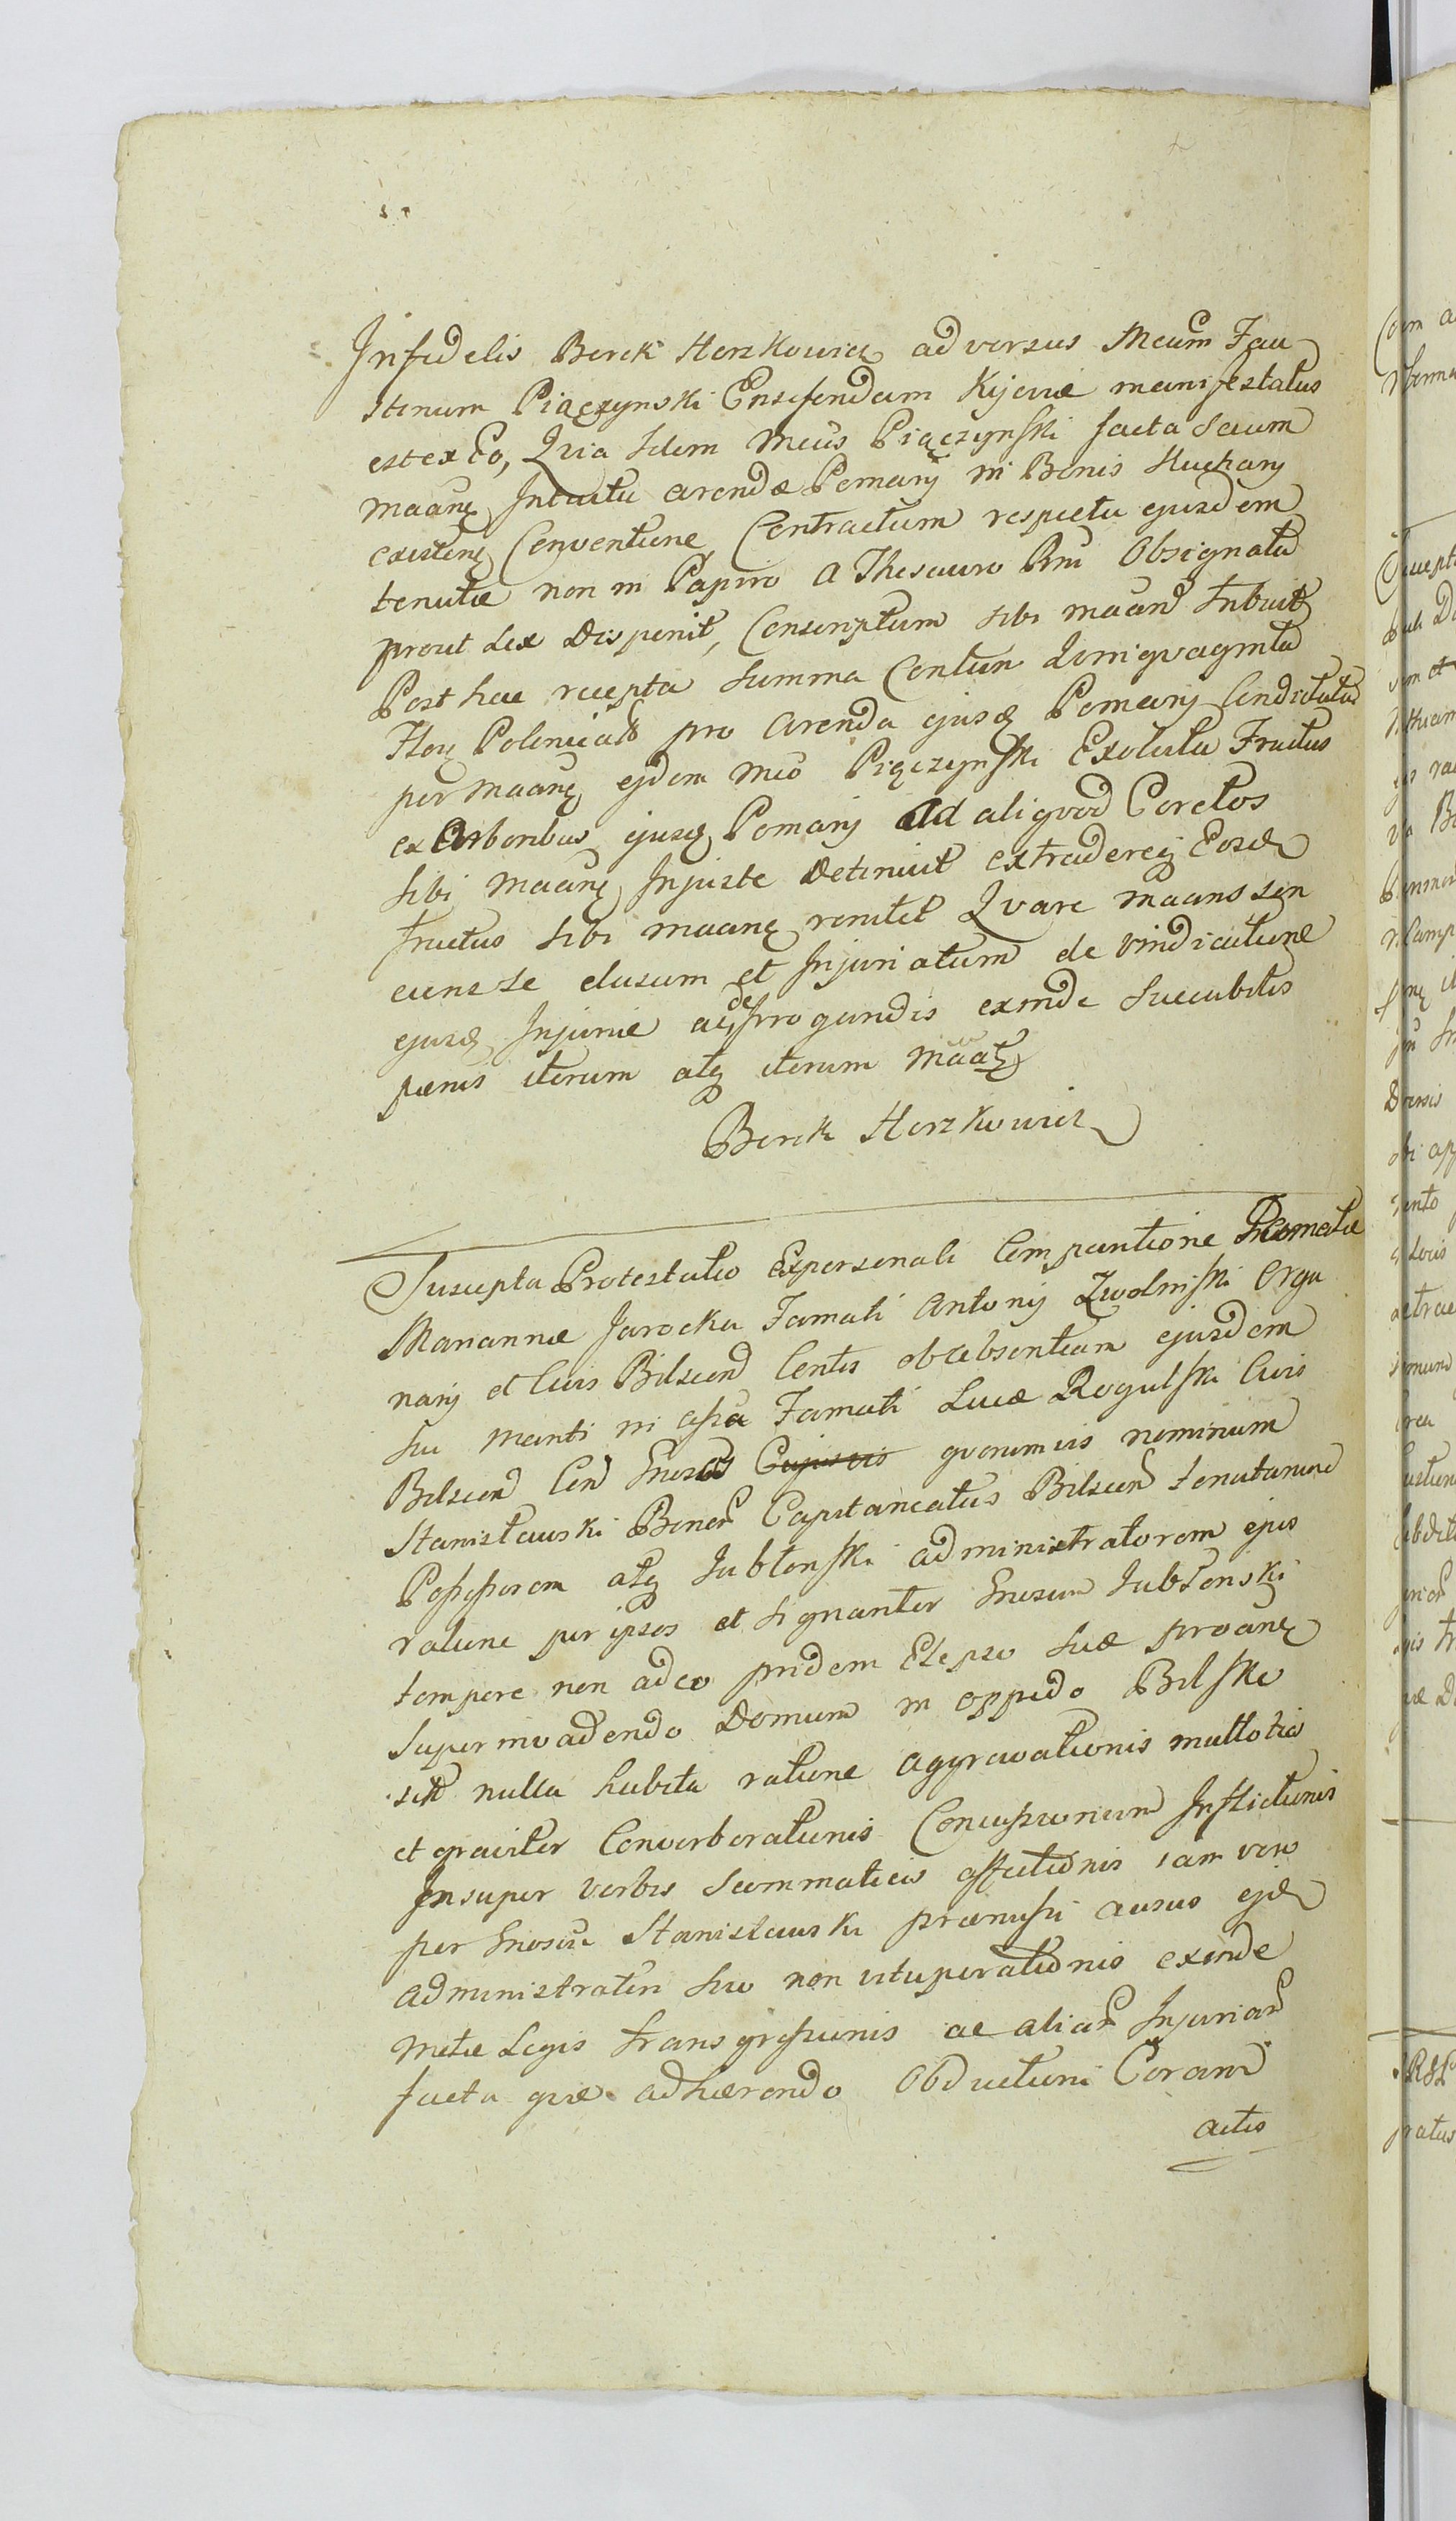 Infidelis Berek Herzkowicz adversus Meum Fau
stinum Piączynski Ensifendam Kijoviæ manifestatus
est ex Eo, Qvia Idem Mcus Piączynski facta Secum
maanę Intuitu arendæ Pomarij in Bonis Kuchary
existenę Conventione, Contractum respectu ejusdem
tenutæ non in Papiro a Thesauro Rni Obsignata
prout Lex Disponit, Conscriptum sibi maand tribuit
Post hac recepta summa Centum Qvinqvaginta
Flor Polonical pro arenda ejusd Pomarij Condictata
per maanę ejdem Mco Piączynski Exoluta Fructus
ex Arboribus ejusd Pomarij ad aliqvod Coretos
sibi maanę Injuste Detinuit extradereq Eosd
fructus sibi maanę renitet Qvare maans sen
ciens se elusum et Injuriatum de vindicatione
ejusd Injuriæ acq de irrogandis exinde succubitis
pænis iterum atq iterum maat
Berek Herzkowicz
Suscepta Protestatio Expersonali Comparitione Famatæ
Mariannæ Jarocka Famati Antonij Zwolinski Orga
narij et Civis Bilscen Contis ob absentiam ejusdem
sui Mariti in assa Famati Lucæ Rogulski Civis
Bilscen Con Gnosos Cujusvis qvorumvis nominum
Stanisławski Bonor Capitaneatus Bilscen tenutarium
Possessorem atq Jabłonski administratorem ejus
ratione per ipsos et signanter Gnosum Jabłonski
tempore non adeo pridem Elapso suæ proanę
super invadendo Domum in oppido Bilsko
sitt nulla habita ratione aggravationis multotis
et graviter Converberationis Concussionum Inflictionis
Insuper verbis scommaticis affectionis iam vero
per Gnosum Stanisławski præmissi ausus ejd
administratori suo non vituperationis exinde
metæ Legis transgressionis ac aliar Injuriar
facta qvæ adhærendo Obductioni Coram
actis